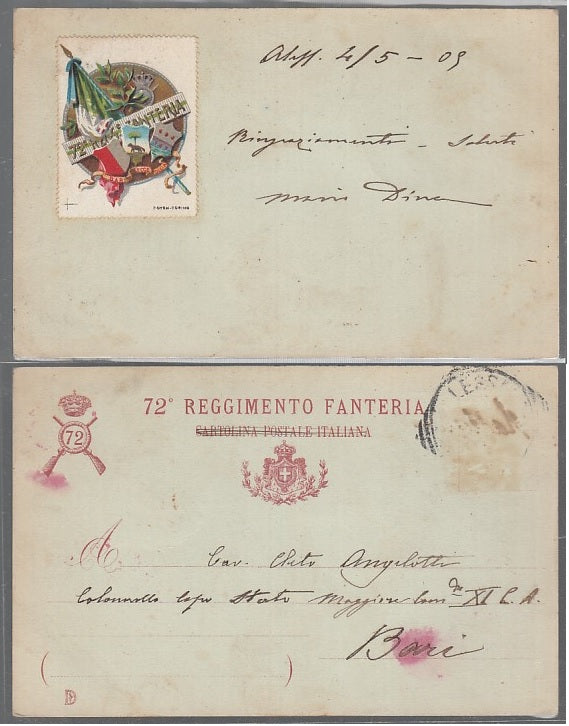 Aless. 4/5 - 09
72° REGG. FANTERIA
Ringraziamenti - Saluti
Mario Dina
72° REGGIMENTO FANTERIA
CARTOLINA POSTALE ITALIANA
LESS
72
A
Cav. Cleto Angelotti
Colonnello Capo Stato Maggiore Com do XI C. A.
Bari
( )
D